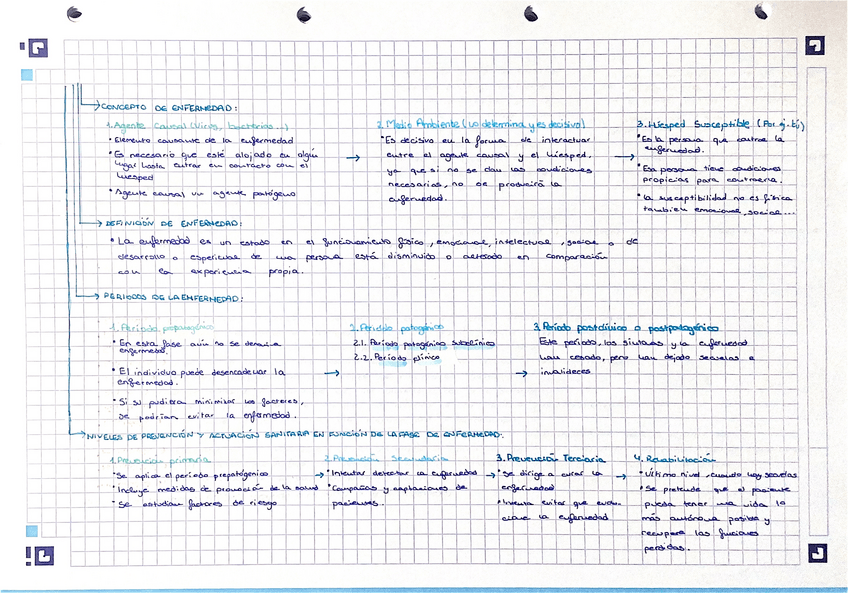 CONCEPTO DE ENFERMEDAD:
1. Agente Causal (Virus, bacterias...)
• Elemento causante de la enfermedad
• Es necesario que esté alojado en algún
lugar hasta entrar en contacto con el
huésped
• Agente causal un agente patógeno
2. Medio Ambiente (Lo determina y es decisivo)
• Es decisivo en la forma de interactuar
entre el agente causal y el huésped,
ya que si no se dan las condiciones
necesarias, no se producirá la
enfermedad.
3. Huésped Susceptible (Por ej. Ej)
• Es la persona que contrae la
enfermedad.
• Esa persona tiene condiciones
propicias para contraerla.
• la susceptibilidad no es física
también emocional, social...
DEFINICIÓN DE ENFERMEDAD:
• La enfermedad es un estado en el funcionamiento físico, emocional, intelectual, social o de
desarrollo o espiritual de una persona está disminuido o alterado en comparación
con la experiencia propia.
PERIODOS DE LA ENFERMEDAD:
1. Período prepatogénico
• En esta fase aún no se denomina
enfermedad.
• El individuo puede desencadenar la
enfermedad.
• Si su pudiera minimizar los factores,
se podrían evitar la enfermedad.
2. Período patogénico
2.1. Período patogénico subclínico
2.2. Período clínico
3. Período postclínico o postpatogénico
Este período, los síntomas y la enfermedad
han cesado, pero han dejado secuelas e
invalideces
NIVELES DE PREVENCIÓN Y ACTUACIÓN SANITARIA EN FUNCIÓN DE LA FASE DE ENFERMEDAD:
1. Prevención primaria
• Se aplica el período prepatogénico
• Incluye medidas de promoción de la salud
• Se estudian factores de riesgo
2. Prevención Secundaria
• Intentar detectar la enfermedad
• Campañas y captaciones de
pacientes.
3. Prevención Terciaria
• Se dirige a curar la
enfermedad
• Intenta evitar que evolu-
cione la enfermedad
4. Rehabilitación
• Último nivel, cuando hay secuelas
• Se pretende que el paciente
pueda tener una vida lo
más autónoma posible y
recupere las funciones
perdidas.